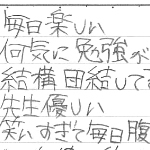 毎日楽しい
何気に勉強が
結構団結してる
先生優しい
笑いすぎて毎日腹